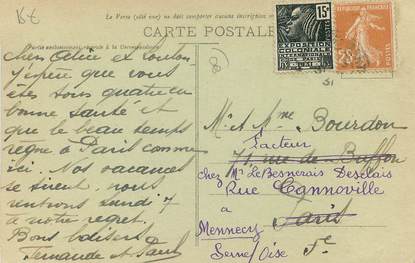 Le Verso (côté vue) ne doit comporter aucune inscription
CARTE POSTALE
Partie exclusivement réservée à la Correspondance
15c
EXPOSITION
COLONIALE
INTERNATIONALE
PARIS 1931
POSTES
25c
31
8
chers Alice et tonton
J'espère que vous
êtes tous quatre en
bonne santé et
que le beau temps
règne à Paris comme
ici. Nos vacances
se tirent, nous
rentrons lundi 7
à notre regret.
Bons baisers
Fernande et Paul
Mr & Mme Bourdon
Facteur
71, rue de Buffon
chez Mr Le Besnerais Desclais
Rue Cannoville
à Paris
Mennecy
Seine Oise